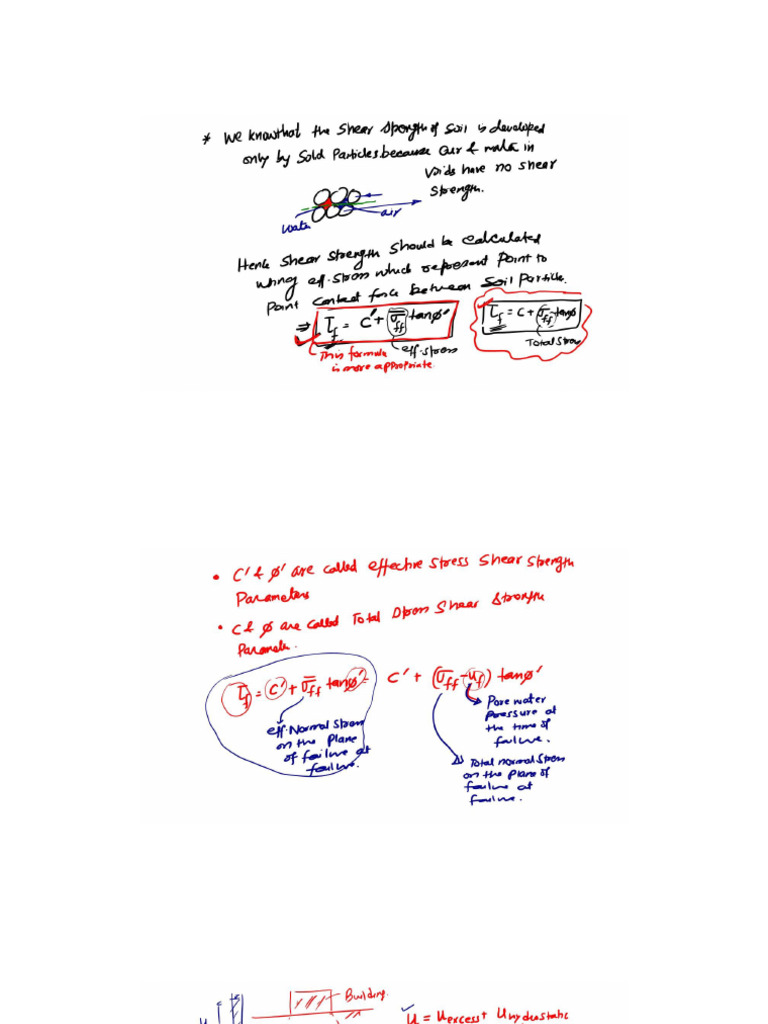 * We know that the shear strength of soil is developed
only by Solid Particles because air & water in
voids have no shear
strength.
water
air
Hence Shear strength should be calculated
using eff. stress which represent Point to
Point Contact force between Soil Particle.
⇒ τf = c' + σ̄ff tanφ'
τf = c + σff tanφ
This formula
is more appropriate.
eff. stress
Total Stress
• C' & φ' are called effective stress shear strength
Parameters
• C & φ are called Total Stress Shear Strength
Parameter.
τf = C' + σ̄ff tanφ' = C' + (σff - uf) tanφ'
eff. Normal stress
on the plane
of failure at
failure.
Pore water
pressure at
the time of
failure.
Total normal stress
on the plane of
failure at
failure.
Building.
u = uexcess + uhydrostatic